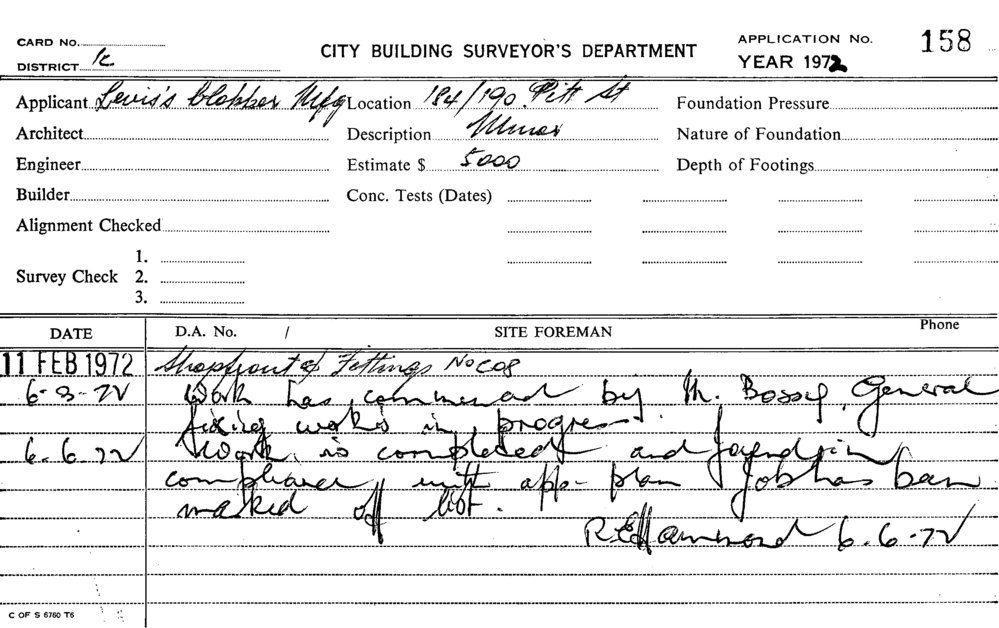 CARD No.
DISTRICT
CITY BUILDING SURVEYOR'S DEPARTMENT
APPLICATION No. 158
YEAR 1972
Applicant Levis's Mfg Location 184/190 Pitt St Foundation Pressure
Architect Description Minor Nature of Foundation
Engineer Estimate $ 5000 Depth of Footings
Builder Conc. Tests (Dates)
Alignment Checked
1.
Survey Check 2.
3.
DATE D.A. No. / SITE FOREMAN Phone
11 FEB 1972 Shopfront & Fittings No COS
6-3-72 Work has commenced by M. General
fixing works in progress
6.6.72 Work is completed and in
compliance with app- plan Job has been
marked off list.
R E Hammond 6.6.72
C OF S 6760 T6